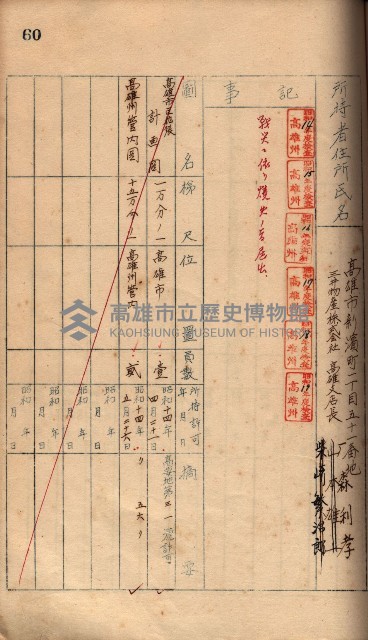 60
所持者住所氏名
高雄市新濱町一丁目五十一番地
三井物産株式会社 高雄支店長
森 利孝
山本 雄一
柴山 鷲治郎
記事
昭和14年度檢査 高雄州
昭和15年度檢査 高雄州
昭和16年度檢査 高雄州
昭和17年度檢査 高雄州
昭和18年度檢査 高雄州
昭和19年度檢査 高雄州
戰災ニ依リ燒失ノ旨届出
圖名 梯尺 位置 員數 所持許可年月日 摘要
計画圖 一万分ノ一 高雄市 壹 昭和十四年四月二十一日
高雄州管内圖 十五万分ノ一 高雄州管内 貳 昭和十四年五月二十六日 〃 五六〃
昭和 年 月 日
昭和 年 月 日
昭和 年 月 日
高雄市立歷史博物館
KAOHSIUNG MUSEUM OF HISTORY